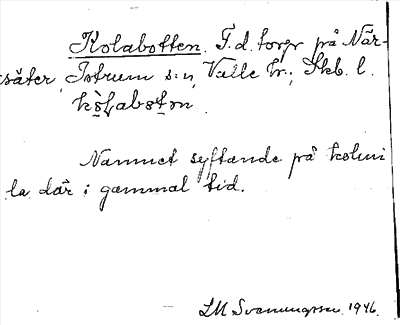 Kolabotten. F. d. torp på När-
säter, Istrum s:n, Valle hr., Skb. l.
Namnet syftande på kolmi
la där i gammal tid.
LM Svanungsson 1946.